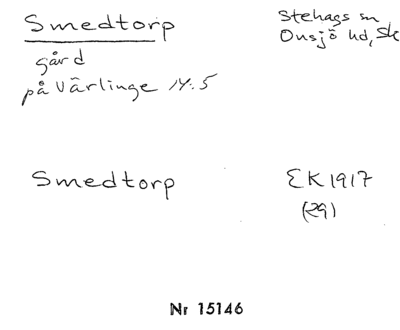 Smedtorp
Stehags sn
Onsjö hd, Sk
gård
på Värlinge 14:5
Smedtorp
EK 1917
(29)
Nr 15146